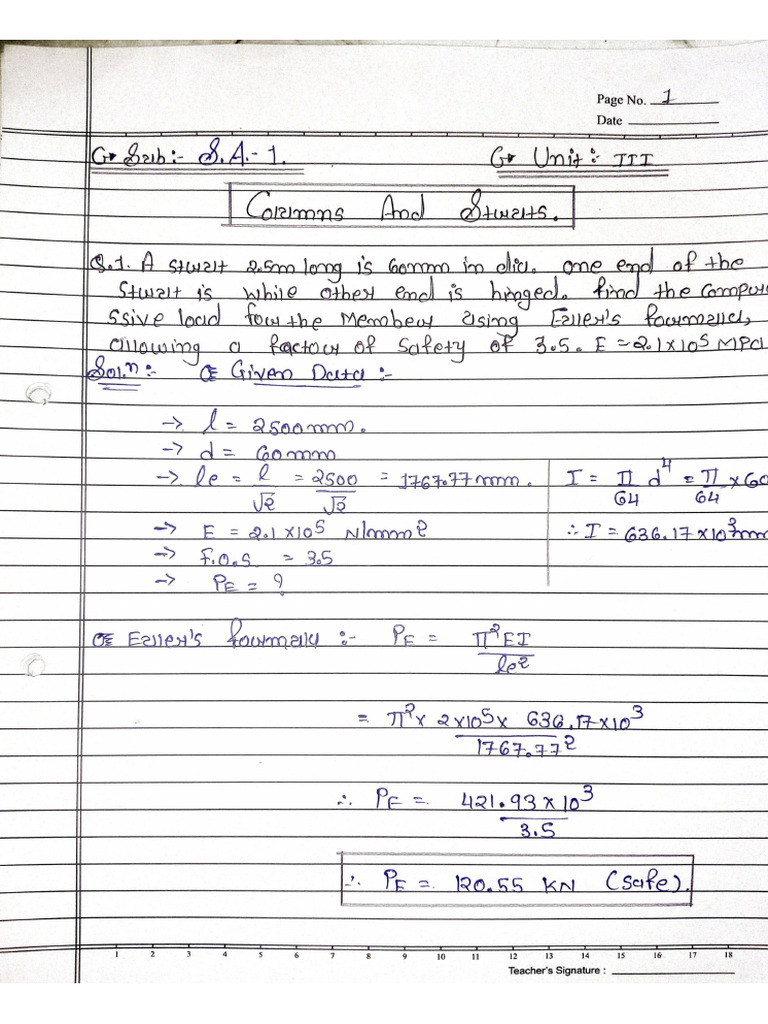 Page No. 1
Date
Sub:- S.A.-1. Unit:- III
Columns And Struts.
Q.1. A strut 2.5m long is 60mm in dia. one end of the
strut is while other end is hinged. find the compre
ssive load for the Member using Euler's formula,
allowing a factor of safety of 3.5. E = 2.1×10⁵ MPa
Sol.ⁿ:- Given Data:-
→ l = 2500mm.
→ d = 60mm
→ le = l/√2 = 2500/√2 = 1767.77mm. I = π/64 d⁴ = π/64 × 60
→ E = 2.1 ×10⁵ N/mm² ∴ I = 636.17×10³mm
→ F.O.S = 3.5
→ PE = ?
Euler's formula :- PE = π²EI/le²
= π² × 2×10⁵ × 636.17×10³/1767.77²
∴ PE = 421.93 × 10³/3.5
∴ PE = 120.55 KN (safe).
1 2 3 4 5 6 7 8 9 10 11 12 13 14 15 16 17 18
Teacher's Signature :